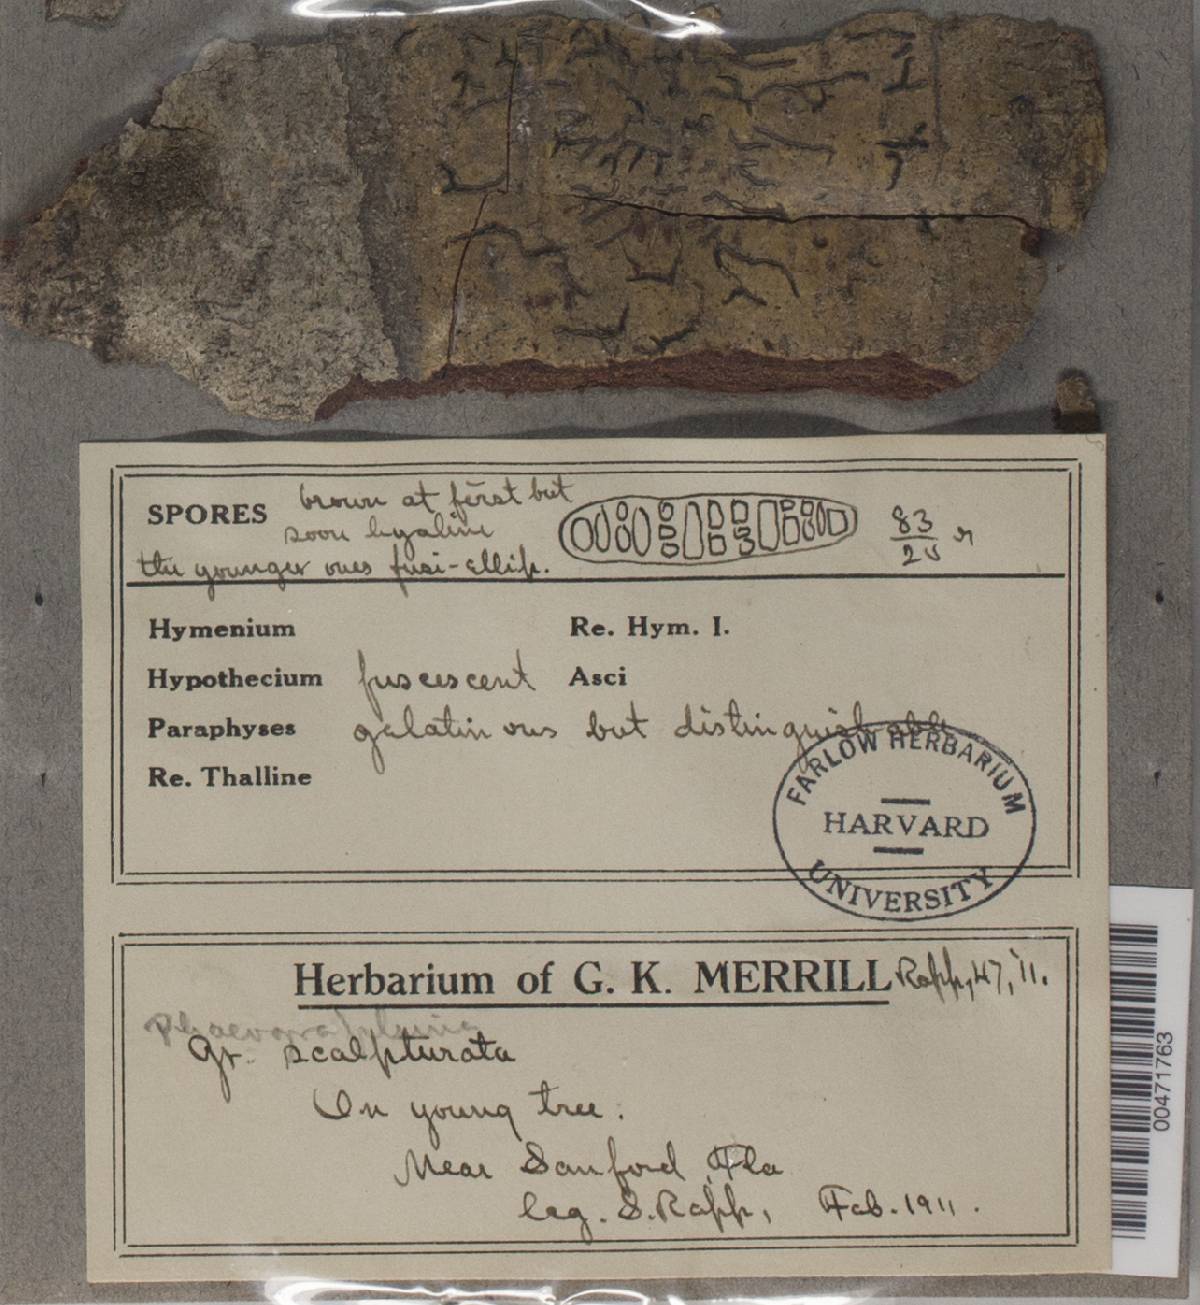 SPORES brown at first but
soon hyaline
the younger ones fusi-ellip.
83
20
Hymenium Re. Hym. I.
Hypothecium fuscescent Asci
Paraphyses galatinous but distinguishable
Re. Thalline
FARLOW HERBARIUM
HARVARD
UNIVERSITY
Herbarium of G. K. MERRILL Rapp, 47, '11.
Phaeographina
Gr. scalpturata
On young tree.
Near Sanford Fla
leg. S. Rapp, Feb. 1911.
00471763